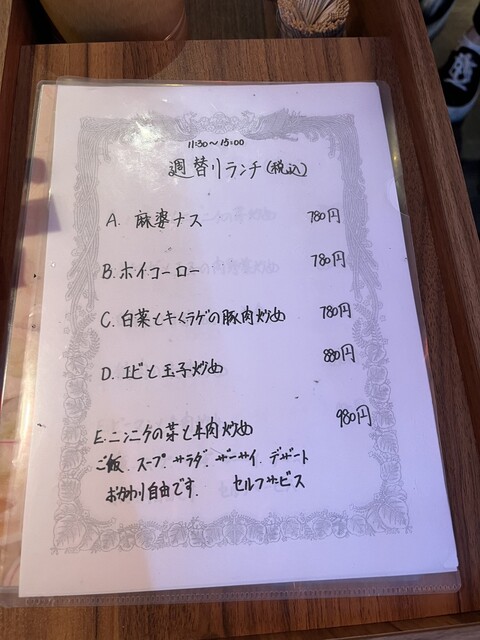 11:30～15:00
週替りランチ(税込)
A. 麻婆ナス 780円
B. ホイコーロー 780円
C. 白菜とキクラゲの豚肉炒め 780円
D. エビと玉子炒め 880円
E. ニンニクの芽と牛肉炒め 980円
ご飯. スープ. サラダ. ザーサイ. デザート
おかわり自由です. セルフサービス